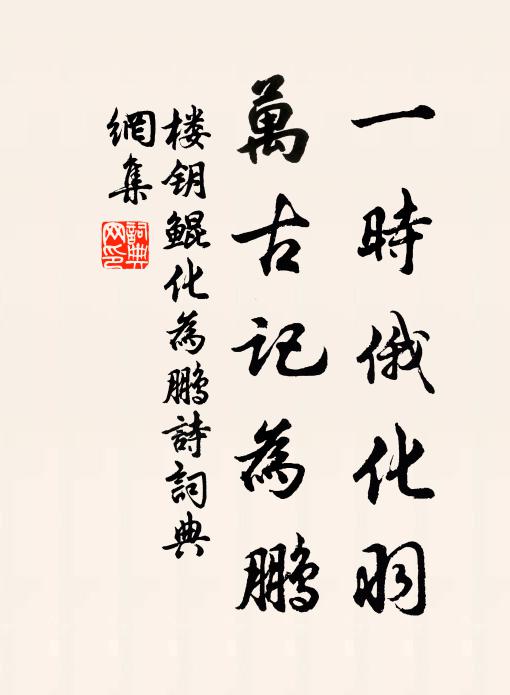 一時俄化羽
萬古記為鵬
楼钥鲲化為鵬詩詞典
網集
詞典网印